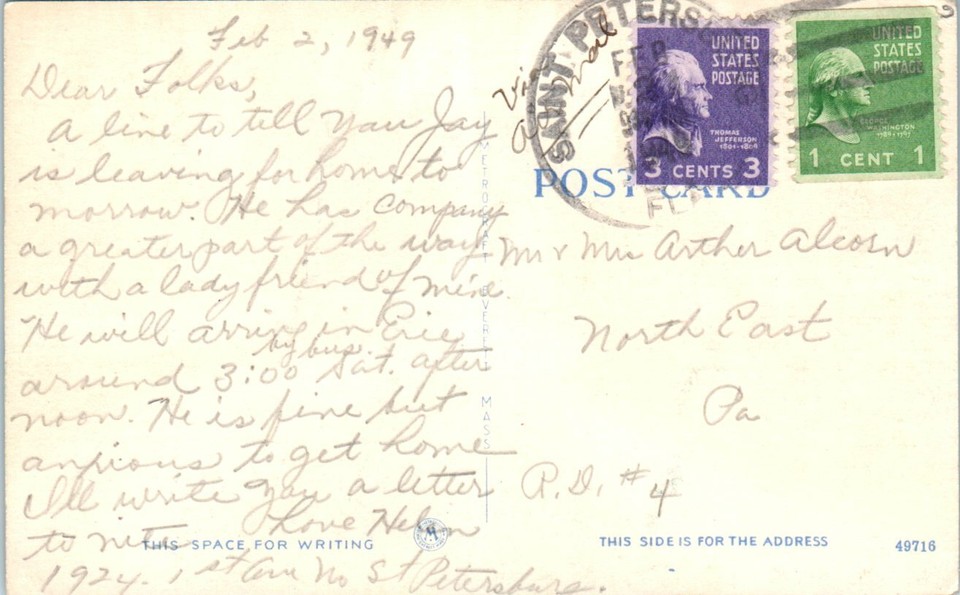 Feb 2, 1949
Dear Folks,
A line to tell you Jay
is leaving for home to
morrow. He has company
a greater part of the way
with a lady friend of mine
He will arring in Erie
by bus
around 3:00 Sat. after
noon. He is fine but
anxious to get home
I'll write you a letter
to nite Love Helen
1924-1st Ave No St Petersburg.
THIS SPACE FOR WRITING
METROCRAFT EVERETT MASS
Via
Mail
SAINT PETERSBURG
FEB
FLA
UNITED
STATES
POSTAGE
THOMAS
JEFFERSON
1801-1809
3 CENTS 3
UNITED
STATES
POSTAGE
GEORGE
WASHINGTON
1789-1797
1 CENT 1
POST CARD
Mr & Mrs Arther Alcorn
North East
Pa
R.D. # 4
THIS SIDE IS FOR THE ADDRESS
49716
M